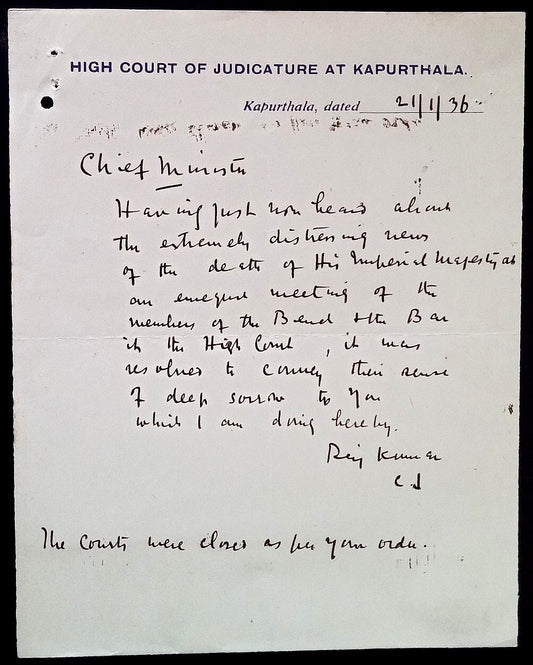 HIGH COURT OF JUDICATURE AT KAPURTHALA.
Kapurthala, dated 21/1/36
Chief Minister
Having just now heard about
the extremely distressing news
of the death of His Imperial Majesty at
an emergent meeting of the
members of the Bench & the Bar
in the High Court, it was
resolved to convey their sense
of deep sorrow to you
which I am doing hereby.
Kumar
C J
The Courts were closed as per your order.